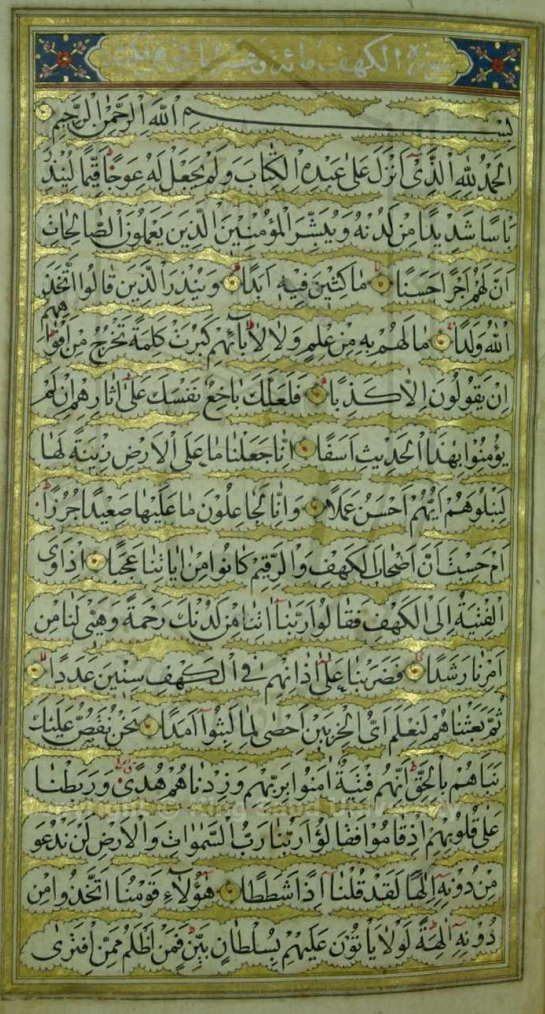 سورة الكهف مائة وعشر
بسم الله الرحمن الرحيم
الحمد لله الذي أنزل على عبده الكتاب ولم يجعل له عوجا قيما لينذر
بأسا شديدا من لدنه ويبشر المؤمنين الذين يعملون الصالحات
أن لهم أجرا حسنا ماكثين فيه أبدا وينذر الذين قالوا اتخذ
الله ولدا ما لهم به من علم ولا لآبائهم كبرت كلمة تخرج من أفواههم
إن يقولون إلا كذبا فلعلك باخع نفسك على آثارهم إن لم
يؤمنوا بهذا الحديث أسفا إنا جعلنا ما على الأرض زينة لها
لنبلوهم أيهم أحسن عملا وإنا لجاعلون ما عليها صعيدا جرزا
أم حسبت أن أصحاب الكهف والرقيم كانوا من آياتنا عجبا إذ أوى
الفتية إلى الكهف فقالوا ربنا آتنا من لدنك رحمة وهيئ لنا من
أمرنا رشدا فضربنا على آذانهم في الكهف سنين عددا
ثم بعثناهم لنعلم أي الحزبين أحصى لما لبثوا أمدا نحن نقص عليك
نبأهم بالحق إنهم فتية آمنوا بربهم وزدناهم هدى وربطنا
على قلوبهم إذ قاموا فقالوا ربنا رب السموات والأرض لن ندعو
من دونه إلها لقد قلنا إذا شططا هؤلاء قومنا اتخذوا من
دونه آلهة لولا يأتون عليهم بسلطان بين فمن أظلم ممن افترى